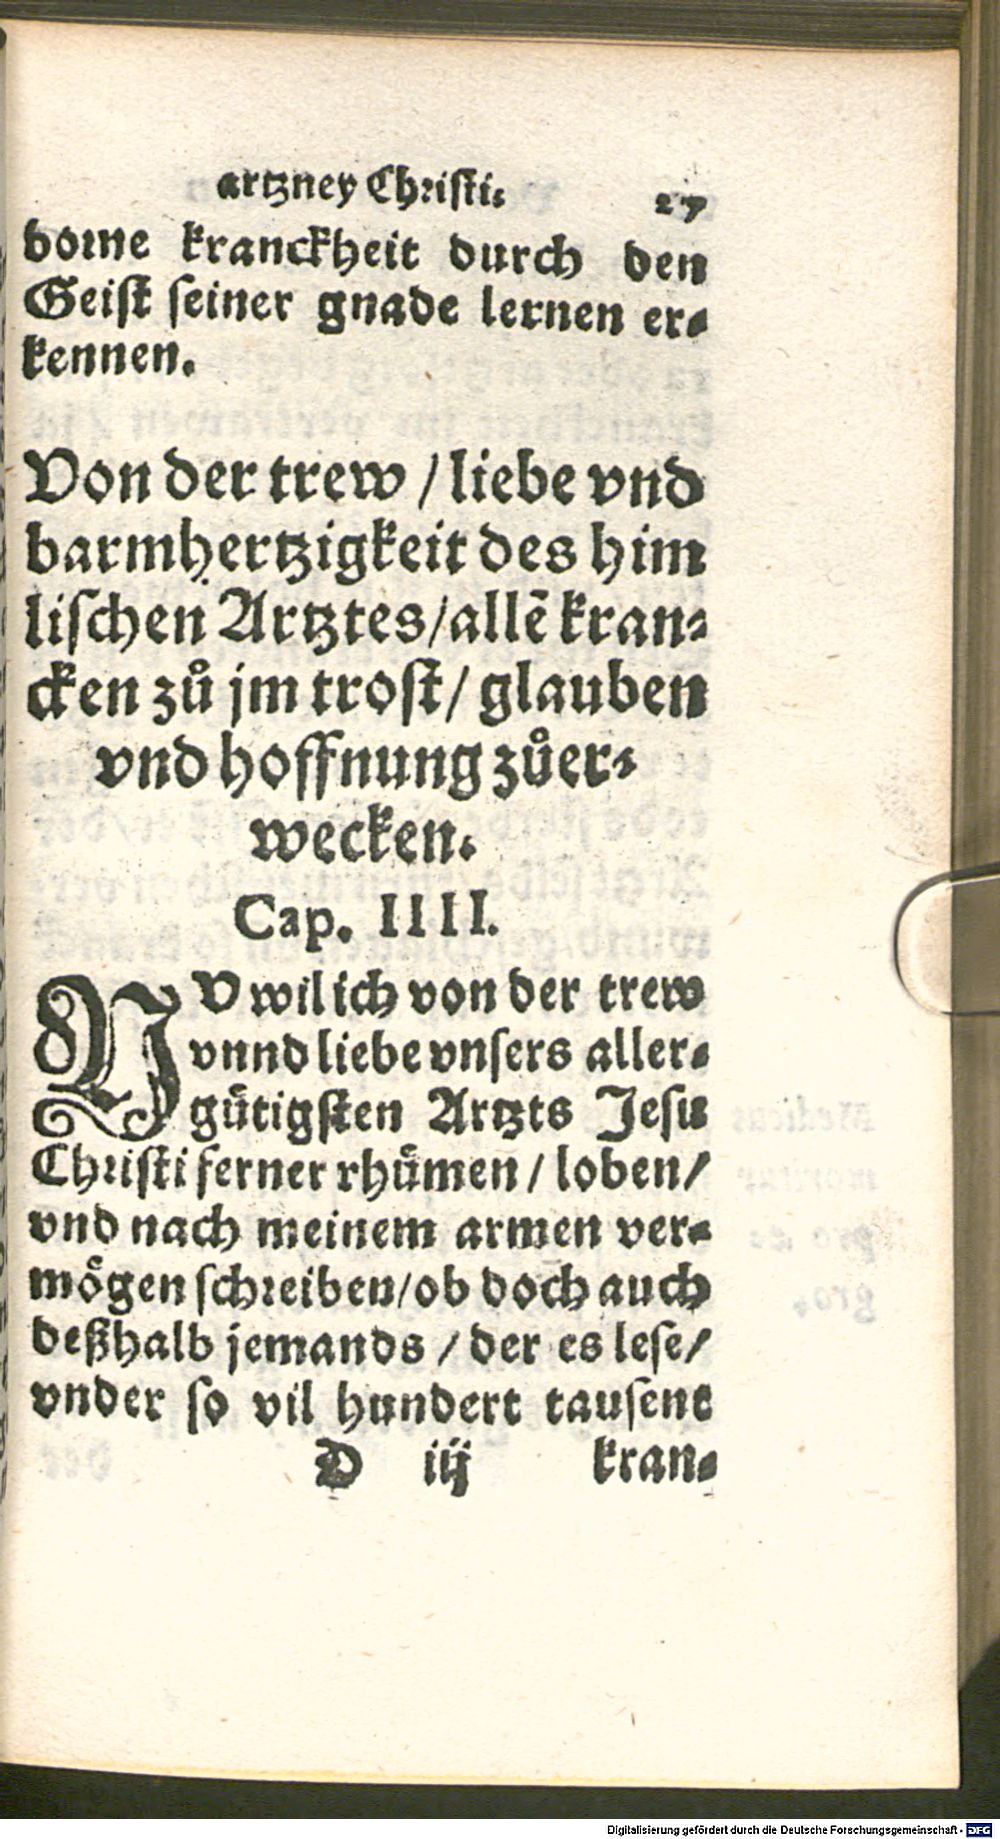 artzney Christi. 27
borne kranckheit durch den
Geist seiner gnade lernen er-
kennen.
Von der trew / liebe vnd
barmhertzigkeit des him
lischen Artztes/allē kran-
cken zů jm trost/ glauben
vnd hoffnung zůer-
wecken.
Cap. IIII.
NV wil ich von der trew
vnnd liebe vnsers aller-
guͤtigsten Artzts Jesu
Christi ferner rhuͤmen / loben/
vnd nach meinem armen ver-
moͤgen schreiben/ob doch auch
deßhalb jemands / der es lese/
vnder so vil hundert tausent
D iij kran-
Digitalisierung gefördert durch die Deutsche Forschungsgemeinschaft - DFG